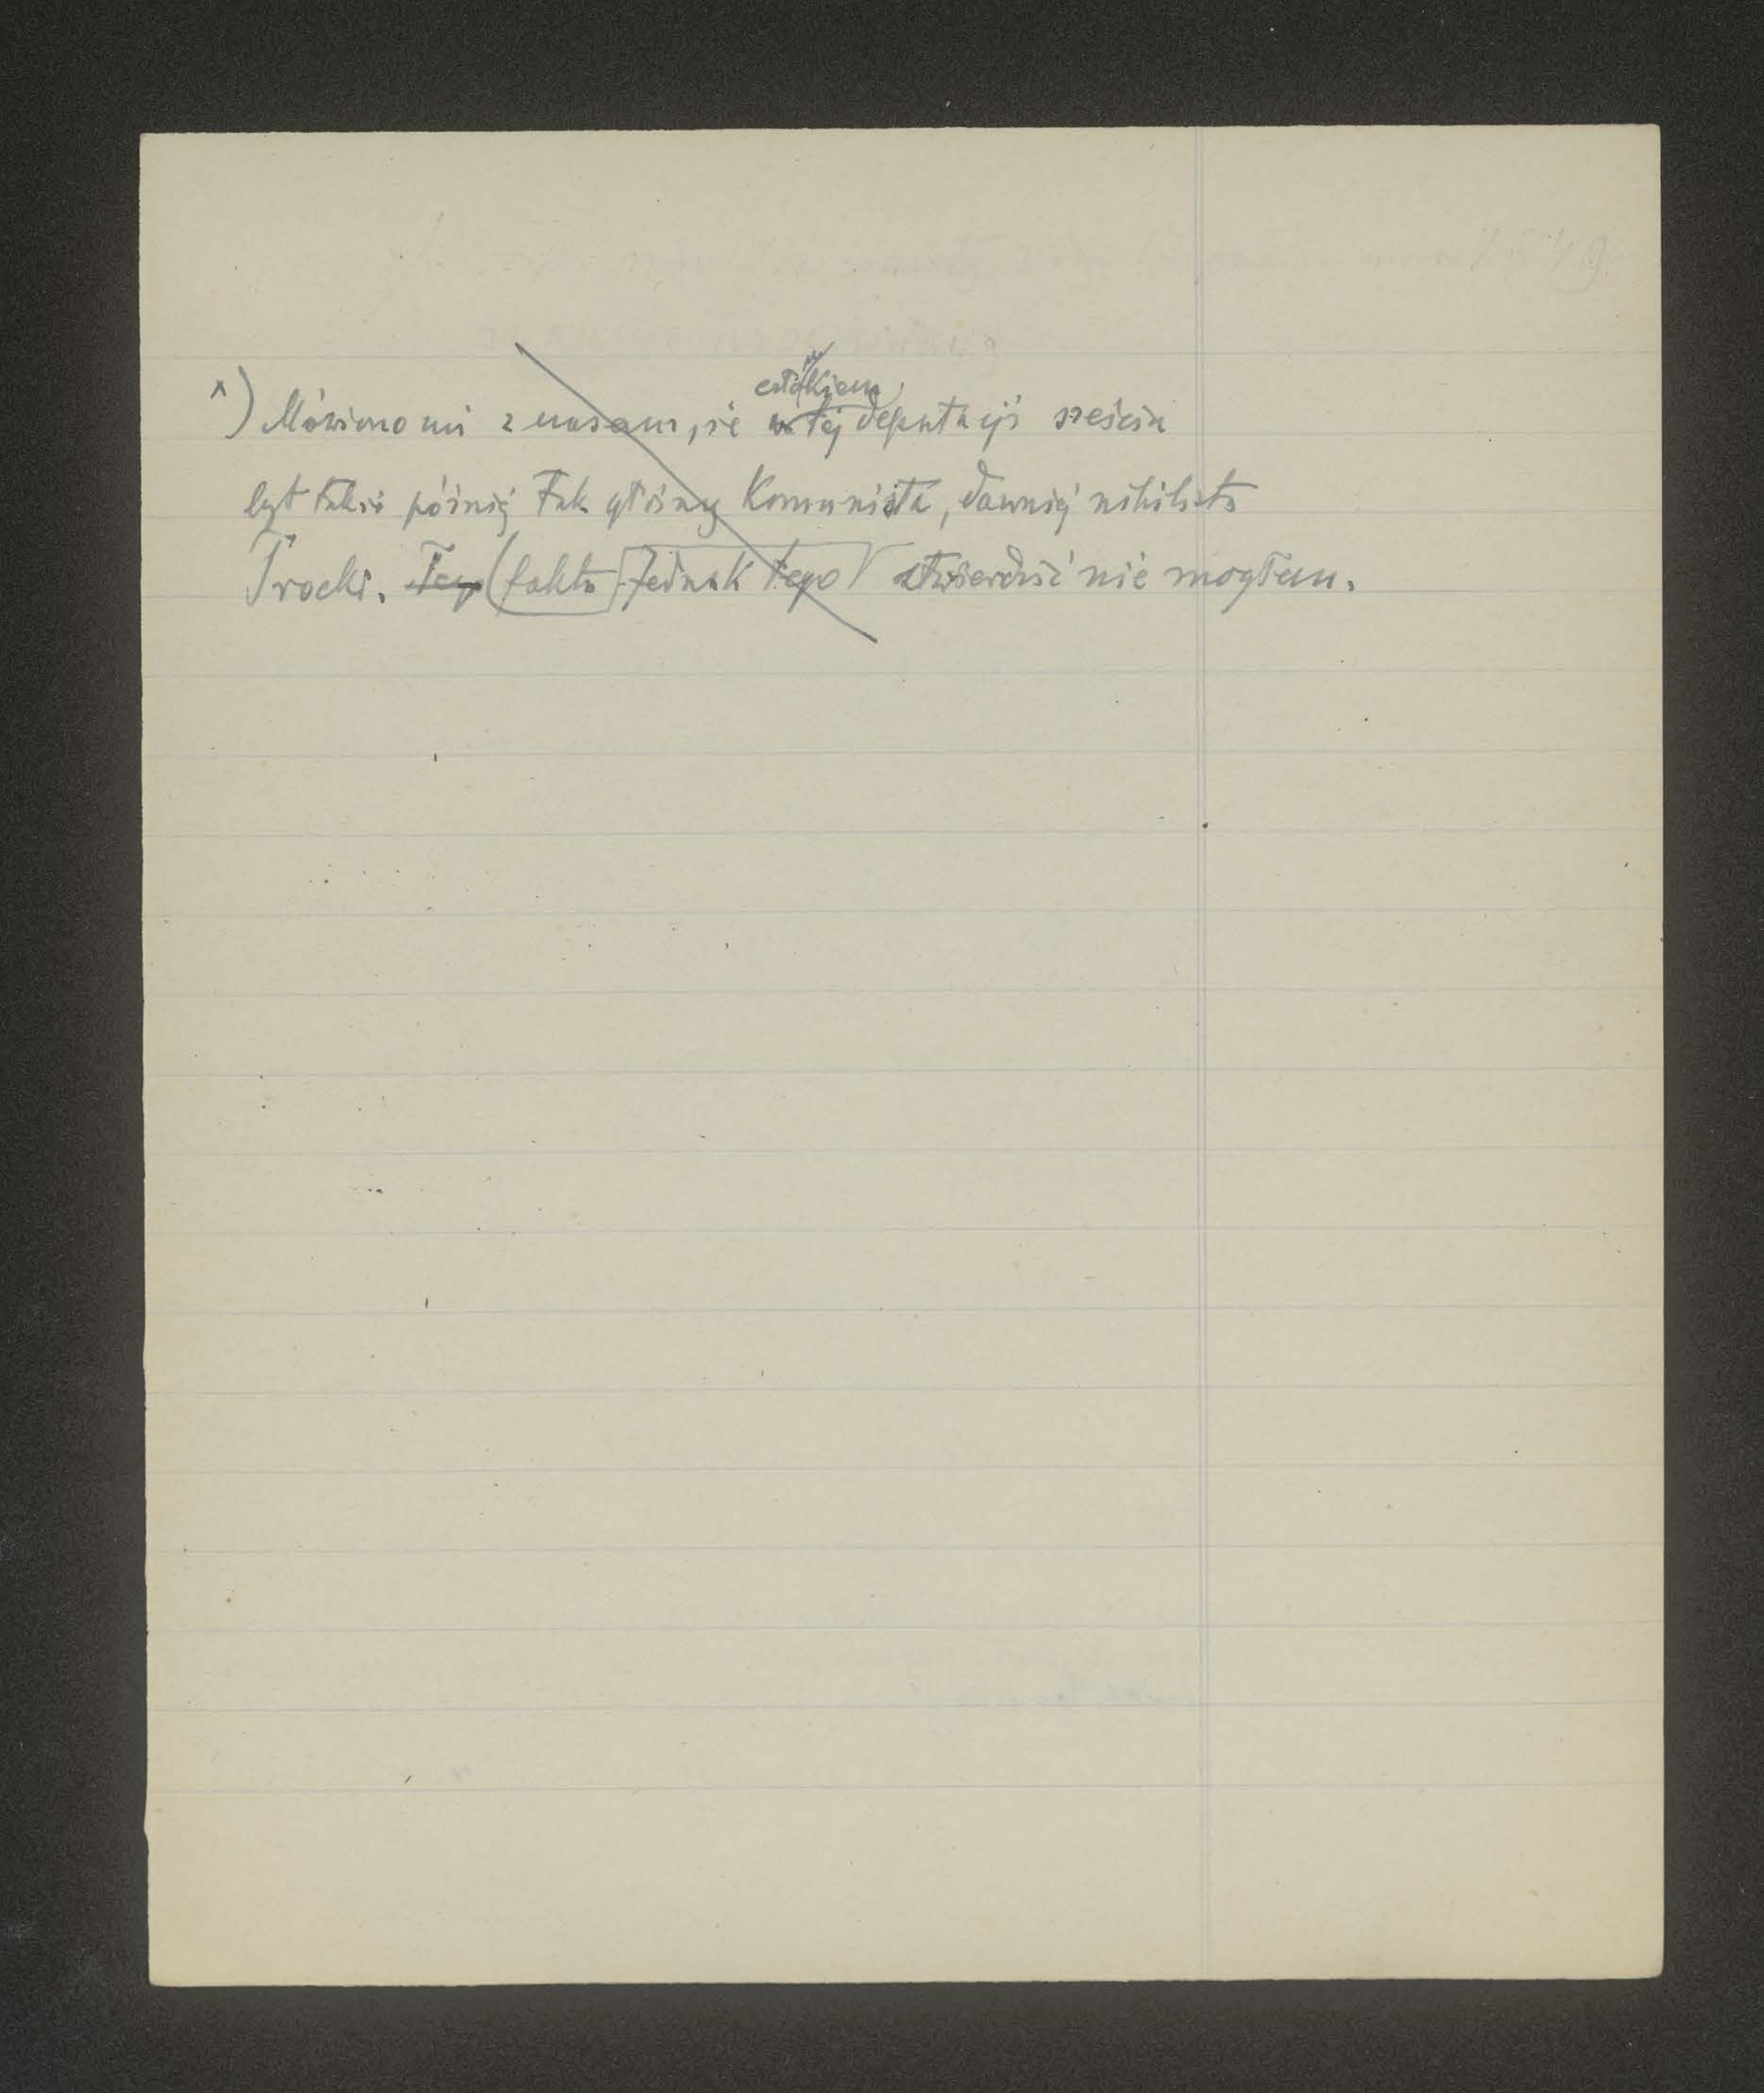 członkiem
x) Mówiono mi z czasem, że w tej deputacji sześciu
był także później tak głośny Komunista, dawniej nihilista
Trocki. Teg (faktu Jednak tego stwierdzić nie mogłem.